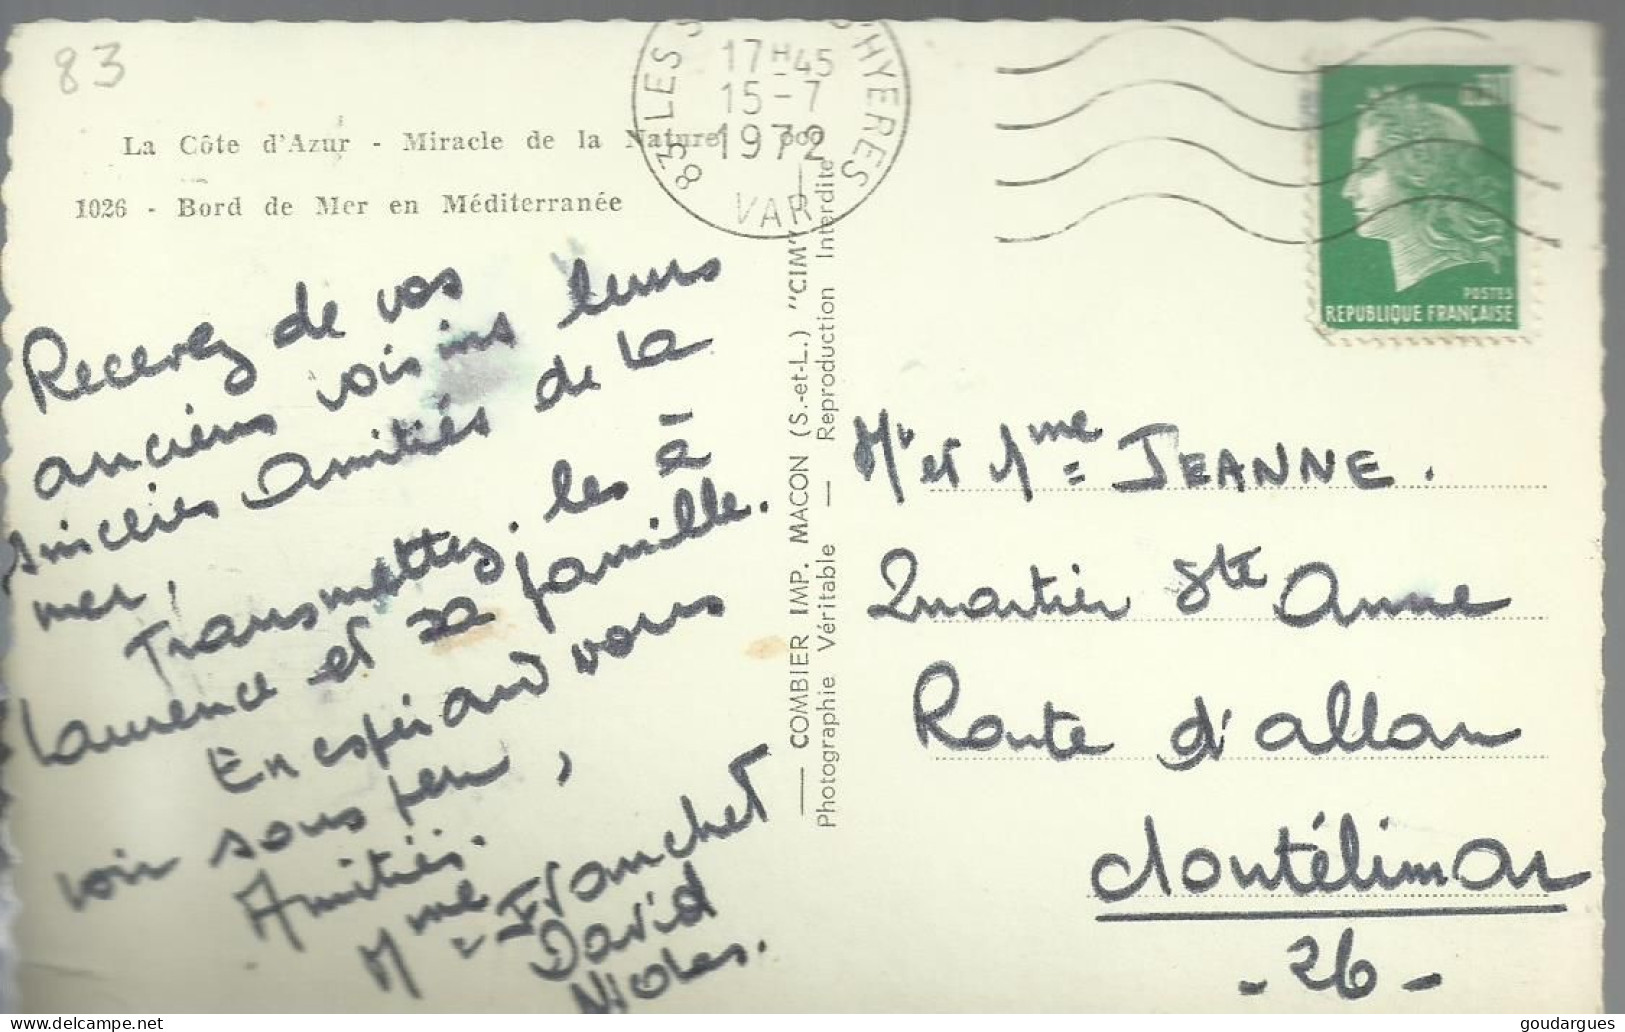 83
La Côte d'Azur - Miracle de la Nature
1026 - Bord de Mer en Méditerranée
83 LES S HYERES
17H45
15-7
1972
VAR
POSTES
REPUBLIQUE FRANÇAISE
Recevez de vos
anciens voisins leurs
sincères amitiés de la
mer,
Transmettez. les à
Laurence et sa famille.
En espérant vous
voir sous peu,
Amitiés.
Mme Franchet
David
Nicolas.
— COMBIER IMP. MACON (S.-et-L.) "CIM"
Photographie Véritable — Reproduction Interdite
Mr et Mme JEANNE.
Quartier Ste Anne
Route d'allan
Montélimar
- 26 -
delcampe.net
goudargues